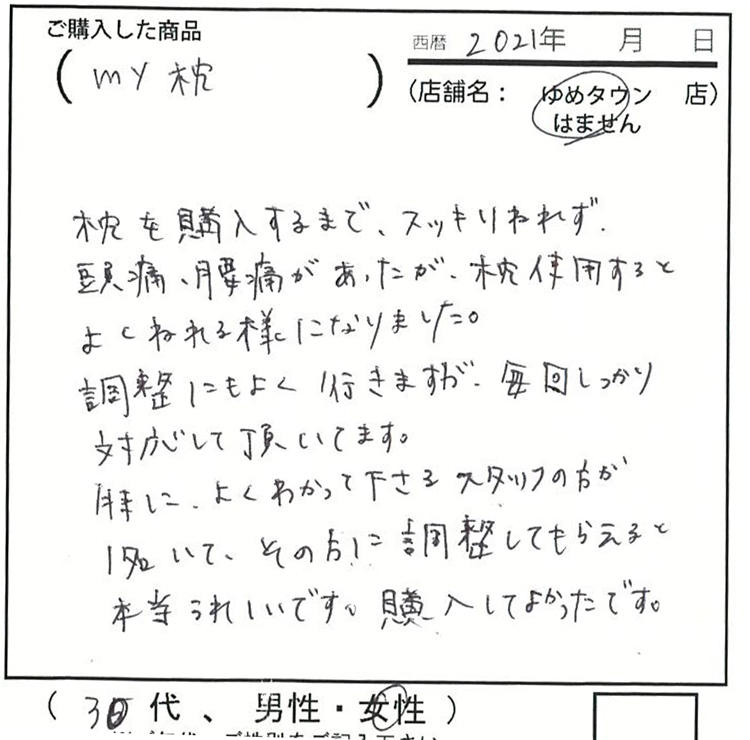 ご購入した商品
(my 枕)
西暦 2021年 月 日
(店舗名: ゆめタウン 店)
はません
枕を購入するまで、スッキリねれず、
頭痛、腰痛があったが、枕使用すると
よくねれる様になりました。
調整にもよく行きますが、毎回しっかり
対応して頂いてます。
特に、よくわかって下さるスタッフの方が
1名いて、その方に調整してもらえると
本当うれしいです。購入してよかったです。
(30代、男性・女性)